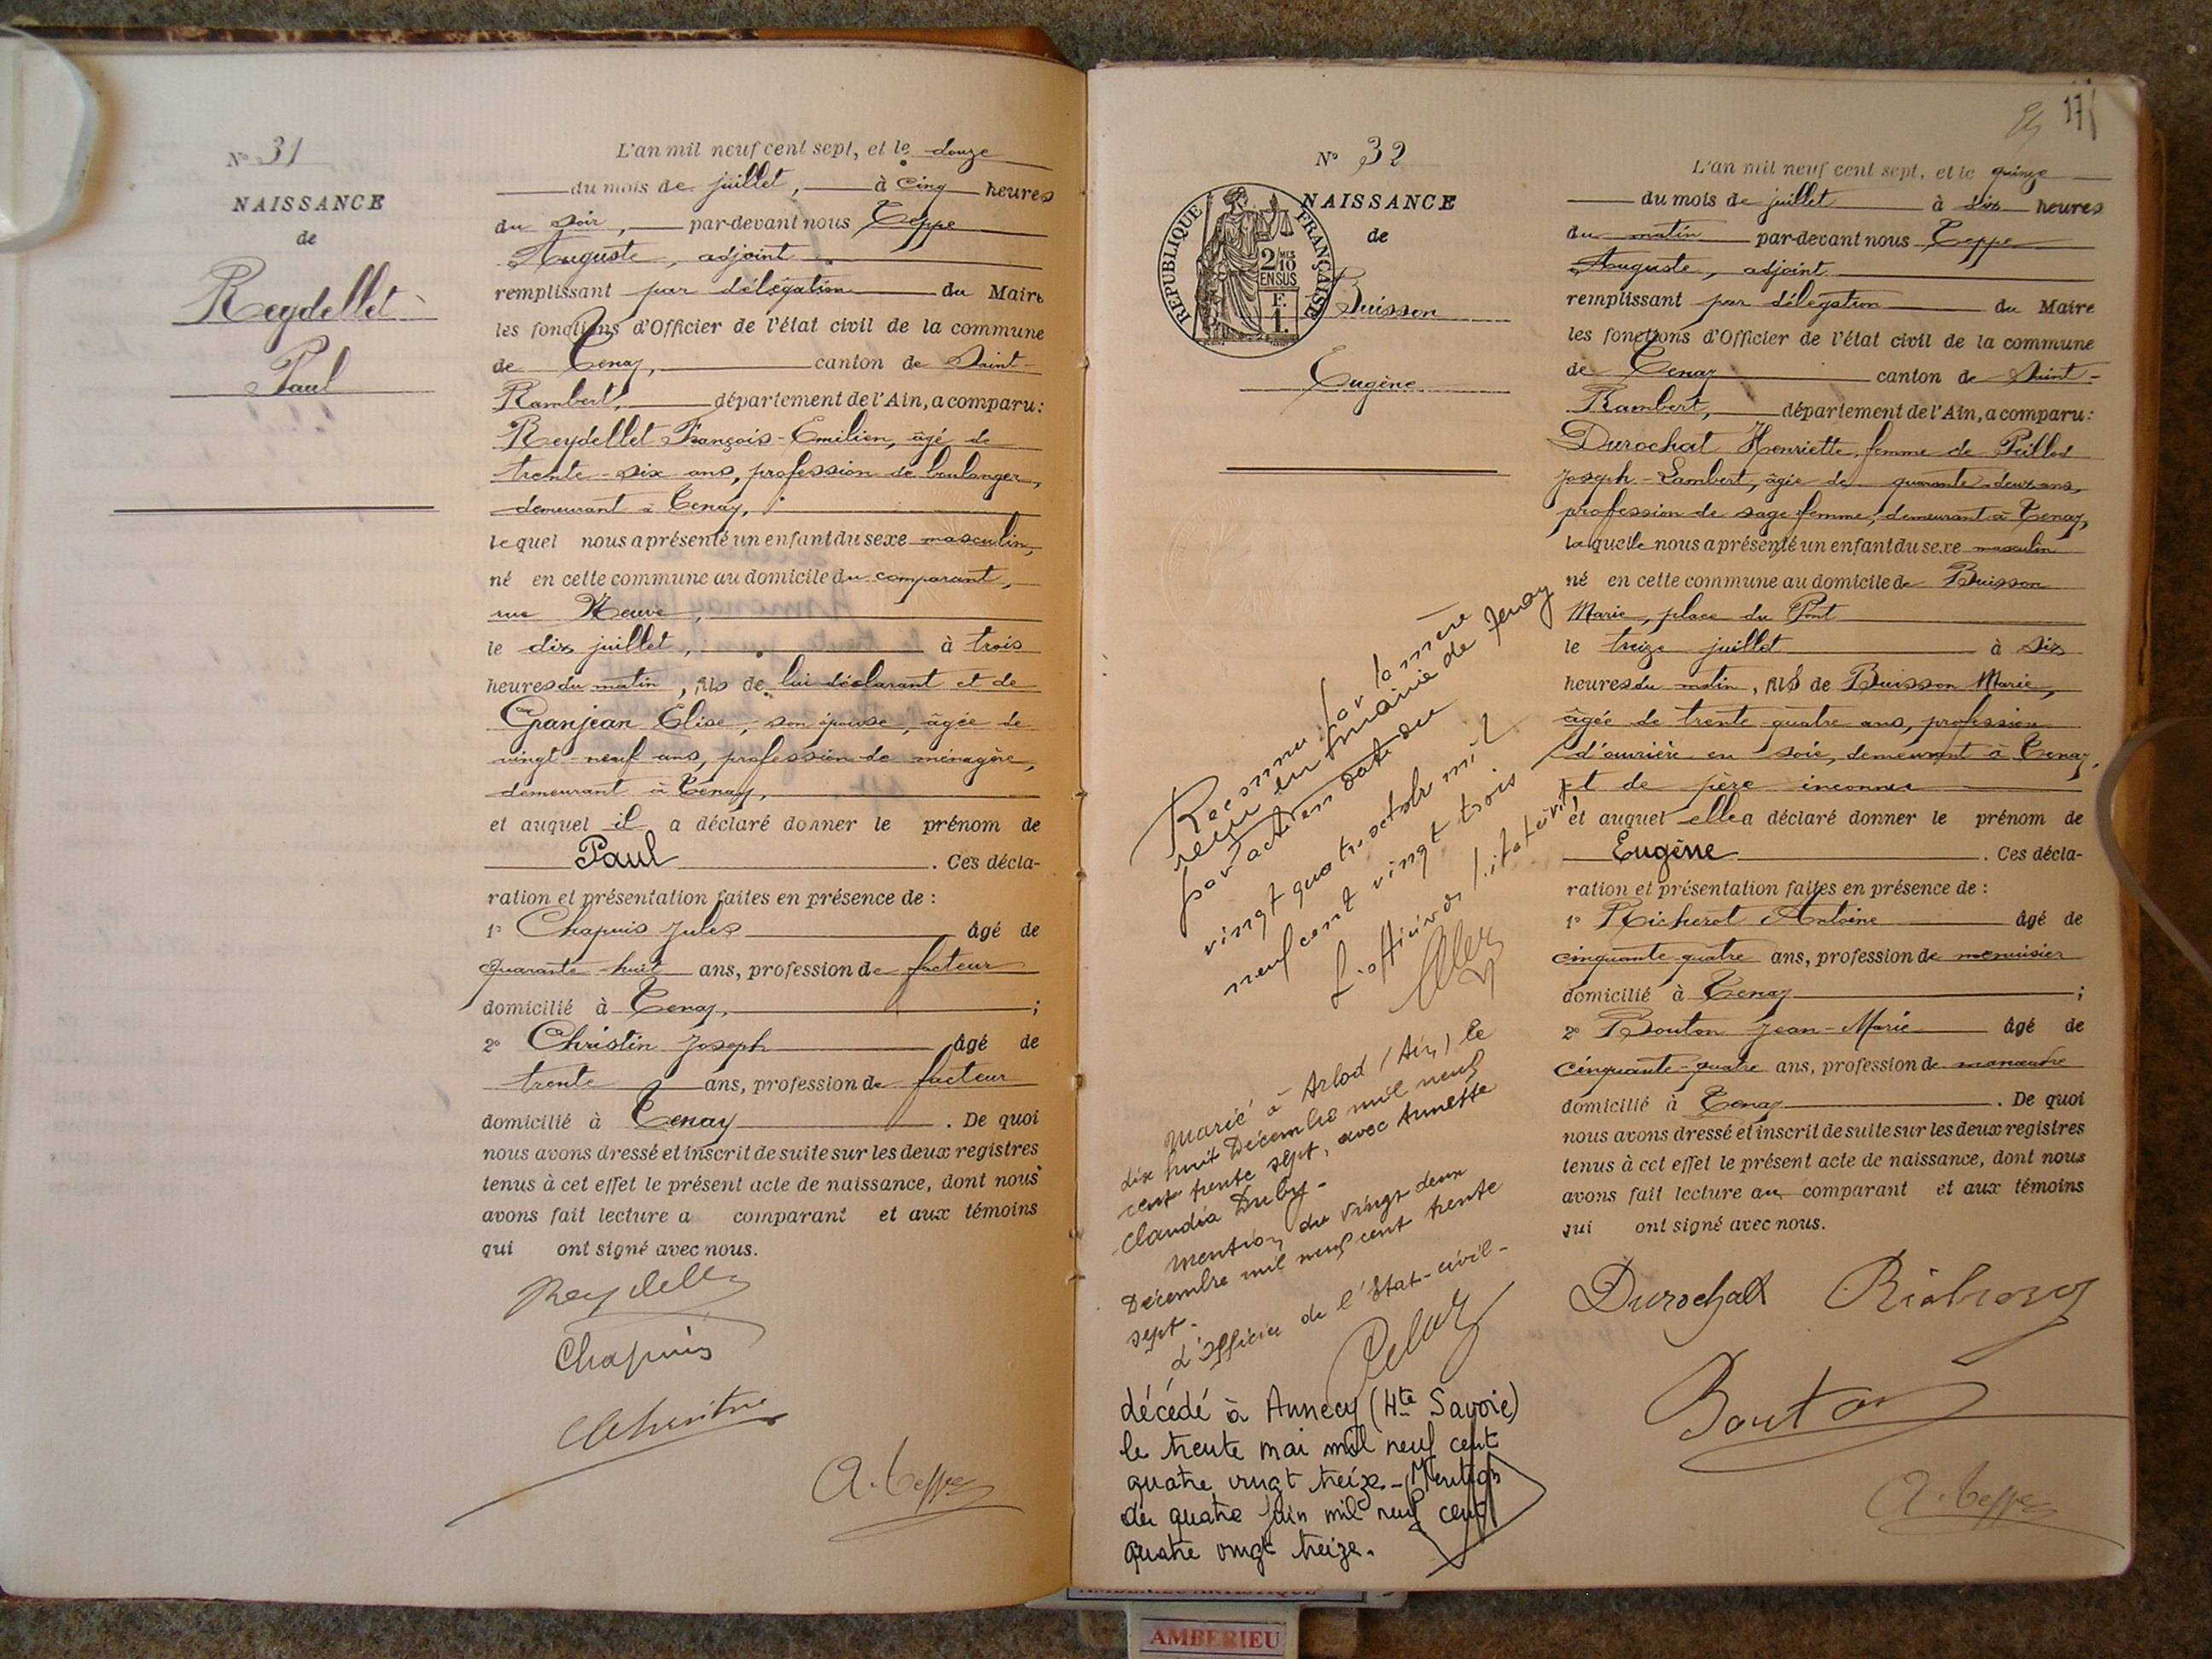 N° 31
NAISSANCE
de
Reydellet
Paul
L'an mil neuf cent sept, et le douze
du mois de juillet, à cinq heures
du soir, par-devant nous Teppe
Auguste, adjoint
remplissant par délégation du Maire
les fonctions d'Officier de l'état civil de la commune
de Tenay, canton de Saint-
Rambert, département de l'Ain, a comparu :
Reydellet François-Emilien, âgé de
trente-six ans, profession de boulanger,
demeurant à Tenay,
lequel nous a présenté un enfant du sexe masculin,
né en cette commune au domicile du comparant,
rue Neuve,
le dix juillet, à trois
heures du matin, fils de lui déclarant et de
Granjean Elise, son épouse, âgée de
vingt-neuf ans, profession de ménagère,
demeurant à Tenay,
et auquel il a déclaré donner le prénom de
Paul . Ces décla-
ration et présentation faites en présence de :
1° Chapuis Jules âgé de
quarante-huit ans, profession de facteur
domicilié à Tenay, ;
2° Christin Joseph âgé de
trente ans, profession de facteur
domicilié à Tenay . De quoi
nous avons dressé et inscrit de suite sur les deux registres
tenus à cet effet le présent acte de naissance, dont nous
avons fait lecture a comparant et aux témoins
qui ont signé avec nous.
Reydellet
Chapuis
Christin
A. Teppe
175
N° 32
NAISSANCE
de
REPUBLIQUE FRANÇAISE
2/10 MES
EN SUS
F.
1.
Buisson
Eugène
Reconnu par la mère
reçu en mairie de Tenay
par acte en date du
vingt quatre octobre mil
neuf cent vingt trois
L'officier de l'état civil
Marié à Arlod (Ain) le
dix huit Décembre mil neuf
cent trente sept, avec Annette
Claudia Duby -
Mention du vingt deux
Décembre mil neuf cent trente
sept -
L'officier de l'Etat-civil -
décédé à Annecy (Hte Savoie)
le trente mai mil neuf cent
quatre vingt treize - Mention
du quatre juin mil neuf cent
quatre vingt treize.
L'an mil neuf cent sept, et le quinze
du mois de juillet à dix heures
du matin par-devant nous Teppe
Auguste, adjoint
remplissant par délégation du Maire
les fonctions d'Officier de l'état civil de la commune
de Tenay canton de Saint-
Rambert, département de l'Ain, a comparu :
Durochat Henriette, femme de Peillod
Joseph-Lambert, âgée de quarante-deux ans,
profession de sage femme, demeurant à Tenay,
laquelle nous a présenté un enfant du sexe masculin
né en cette commune au domicile de Buisson
Marie, place du Pont
le treize juillet à six
heures du matin, fils de Buisson Marie,
âgée de trente-quatre ans, profession
d'ouvrière en soie, demeurant à Tenay,
et de père inconnu
et auquel elle a déclaré donner le prénom de
Eugène . Ces décla-
ration et présentation faites en présence de :
1° Richerot Antoine âgé de
cinquante-quatre ans, profession de menuisier
domicilié à Tenay ;
2° Bouton Jean-Marie âgé de
cinquante-quatre ans, profession de manœuvre
domicilié à Tenay . De quoi
nous avons dressé et inscrit de suite sur les deux registres
tenus à cet effet le présent acte de naissance, dont nous
avons fait lecture au comparant et aux témoins
qui ont signé avec nous.
Durochat
Bouton
A. Teppe
AMBERIEU